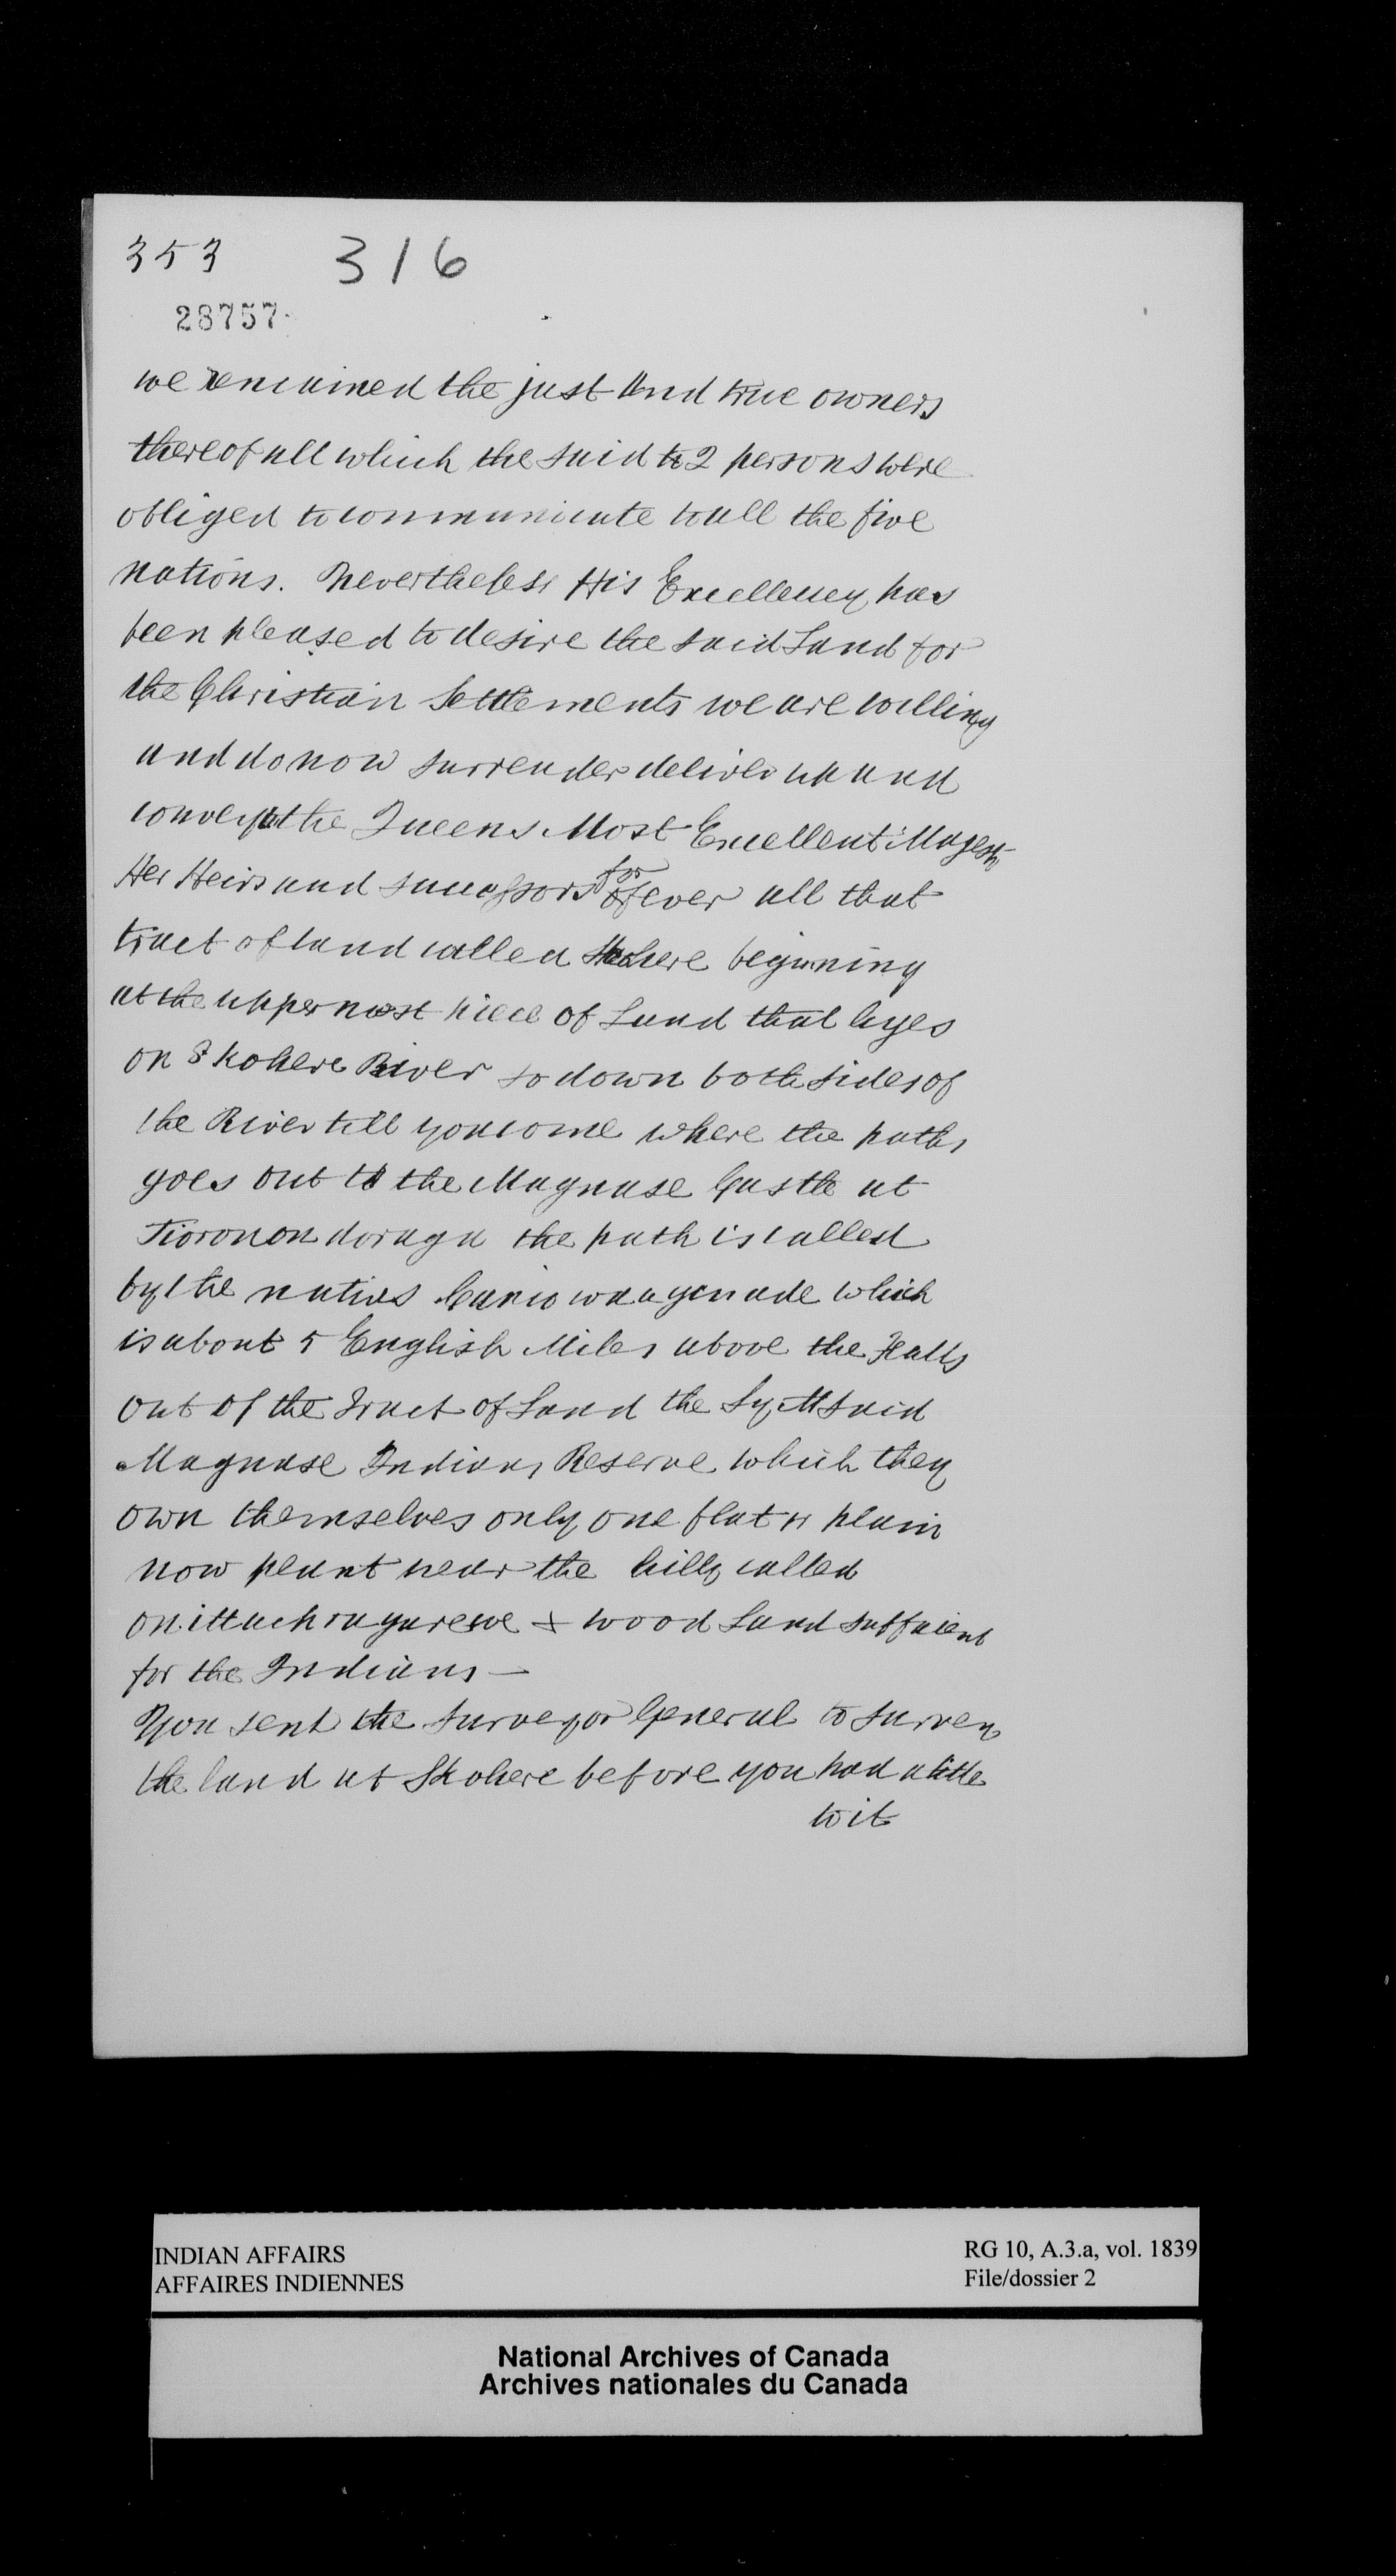 353 316
28757
we remained the just and true owners
thereof all which the said to 2 persons were
obliged to communicate to all the five
nations. Nevertheless His Excellency has
been pleased to desire the said Land for
the Christian Settlements we are willing
and do now surrender deliver up and
convey to the Queens Most Excellent Majesty
Her Heirs and successors for ever all that
tract of land called Skohere beginning
at the uppermost piece of Land that lyes
on Skohere River so down both sides of
the River till you come where the paths
goes out to the Maquase Castle at
Tiononondoraga the path is called
by the natives which
is about 5 English Miles above the Falls
out of the Tract of Land the said
Maquase Indians Reserve which they
own themselves only one flat or plain
now plant near the hill called
onittachragarewe & wood Land suffient
for the Indians —
You sent the Surveyor General to survey
the land at Skohere before you had a title
to it
INDIAN AFFAIRS RG 10, A.3.a, vol. 1839
AFFAIRES INDIENNES File/dossier 2
National Archives of Canada
Archives nationales du Canada